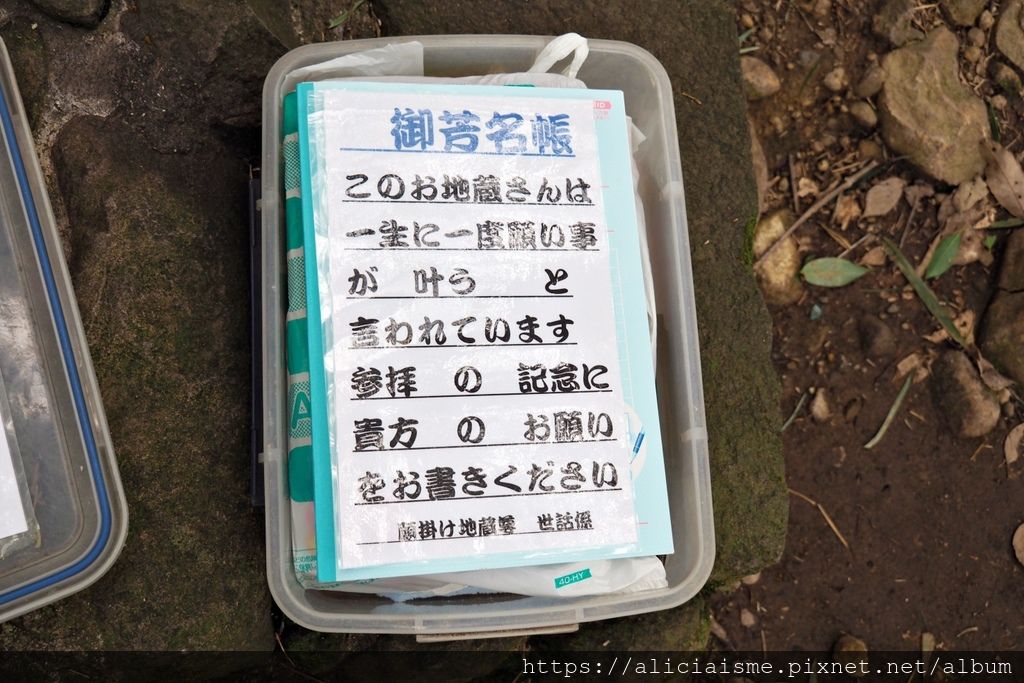 御芳名帳
このお地蔵さんは
一生に一度願い事
が 叶う と
言われています
参拝 の 記念に
貴方 の お願い
をお書きください
願掛け地蔵尊 世話係
A
40-HY
https://aliciaisme.pixnet.net/album